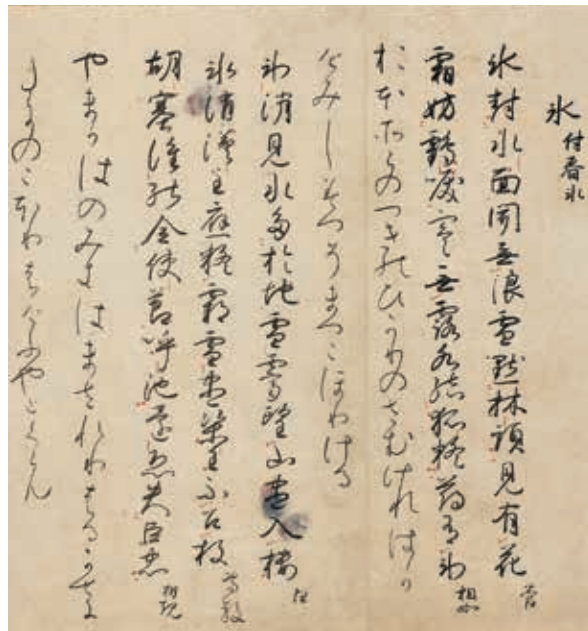 氷付春氷
氷封水面聞無浪雪點林頭見有花 菅
霜妨鶴唳寒無露水結狐疑薄有氷 相如
おほそらのつきのひかりのさむけれはか
けみしみつそまつこほりける
氷消見水多於地雪霽望山盡入樓 白
氷消漢主應疑霸雪盡梁王不召枚 尊敬
胡塞誰能全使節呼池還恐失臣忠 相規
やまかはのみきはまされりはるかせに
たにのこほりはけふやとくらん